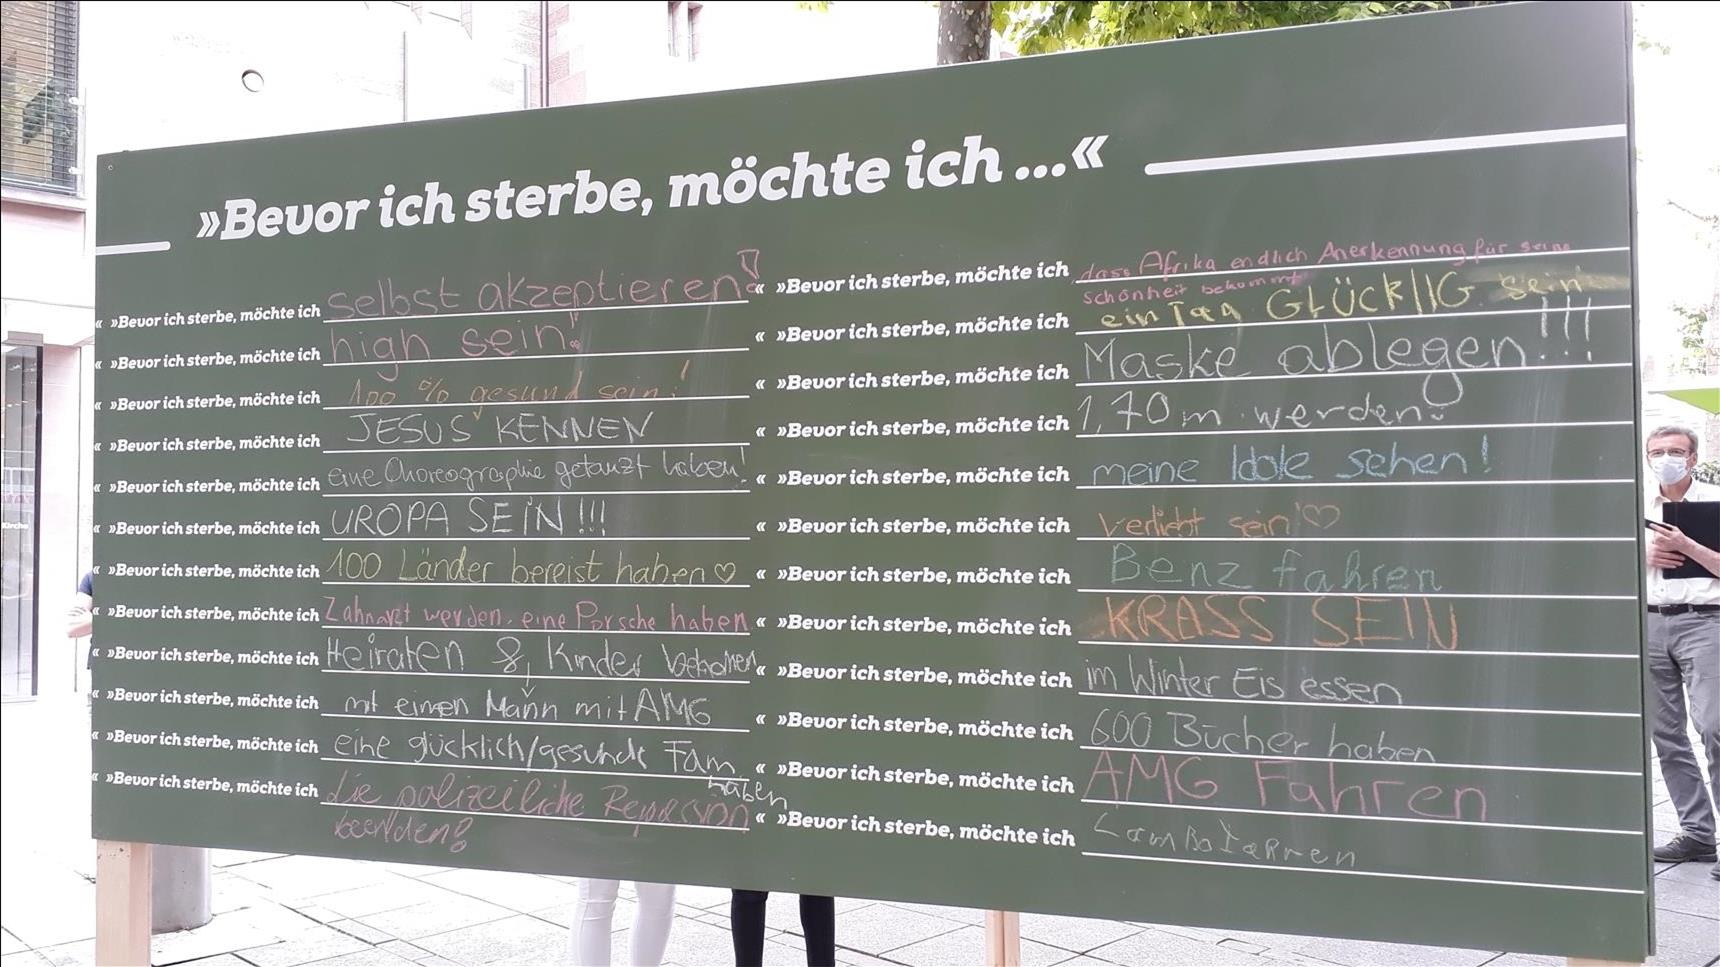 »Bevor ich sterbe, möchte ich ...«
»Bevor ich sterbe, möchte ich selbst akzeptieren! «
»Bevor ich sterbe, möchte ich high sein!
»Bevor ich sterbe, möchte ich 100 % gesund sein!
»Bevor ich sterbe, möchte ich JESUS KENNEN
»Bevor ich sterbe, möchte ich eine Choreographie getanzt haben!
»Bevor ich sterbe, möchte ich UROPA SEIN!!!
»Bevor ich sterbe, möchte ich 100 Länder bereist haben ♡
»Bevor ich sterbe, möchte ich Zahnarzt werden, eine Porsche haben
»Bevor ich sterbe, möchte ich Heiraten & Kinder bekommen
»Bevor ich sterbe, möchte ich mit einen Mann mit AMG
»Bevor ich sterbe, möchte ich eine glücklich/gesunde Fam
haben
»Bevor ich sterbe, möchte ich die polizeiliche Repression
beenden!
»Bevor ich sterbe, möchte ich dass Afrika endlich Anerkennung für seine
schönheit bekommt
»Bevor ich sterbe, möchte ich ein Tag GLÜCKLIG sein
»Bevor ich sterbe, möchte ich Maske ablegen!!!
»Bevor ich sterbe, möchte ich 1,70 m werden!
»Bevor ich sterbe, möchte ich meine Idole sehen!
»Bevor ich sterbe, möchte ich verliebt sein! ♡
»Bevor ich sterbe, möchte ich Benz fahren
»Bevor ich sterbe, möchte ich KRASS SEIN
»Bevor ich sterbe, möchte ich im Winter Eis essen
»Bevor ich sterbe, möchte ich 600 Bücher haben
»Bevor ich sterbe, möchte ich AMG Fahren
»Bevor ich sterbe, möchte ich
Kirche